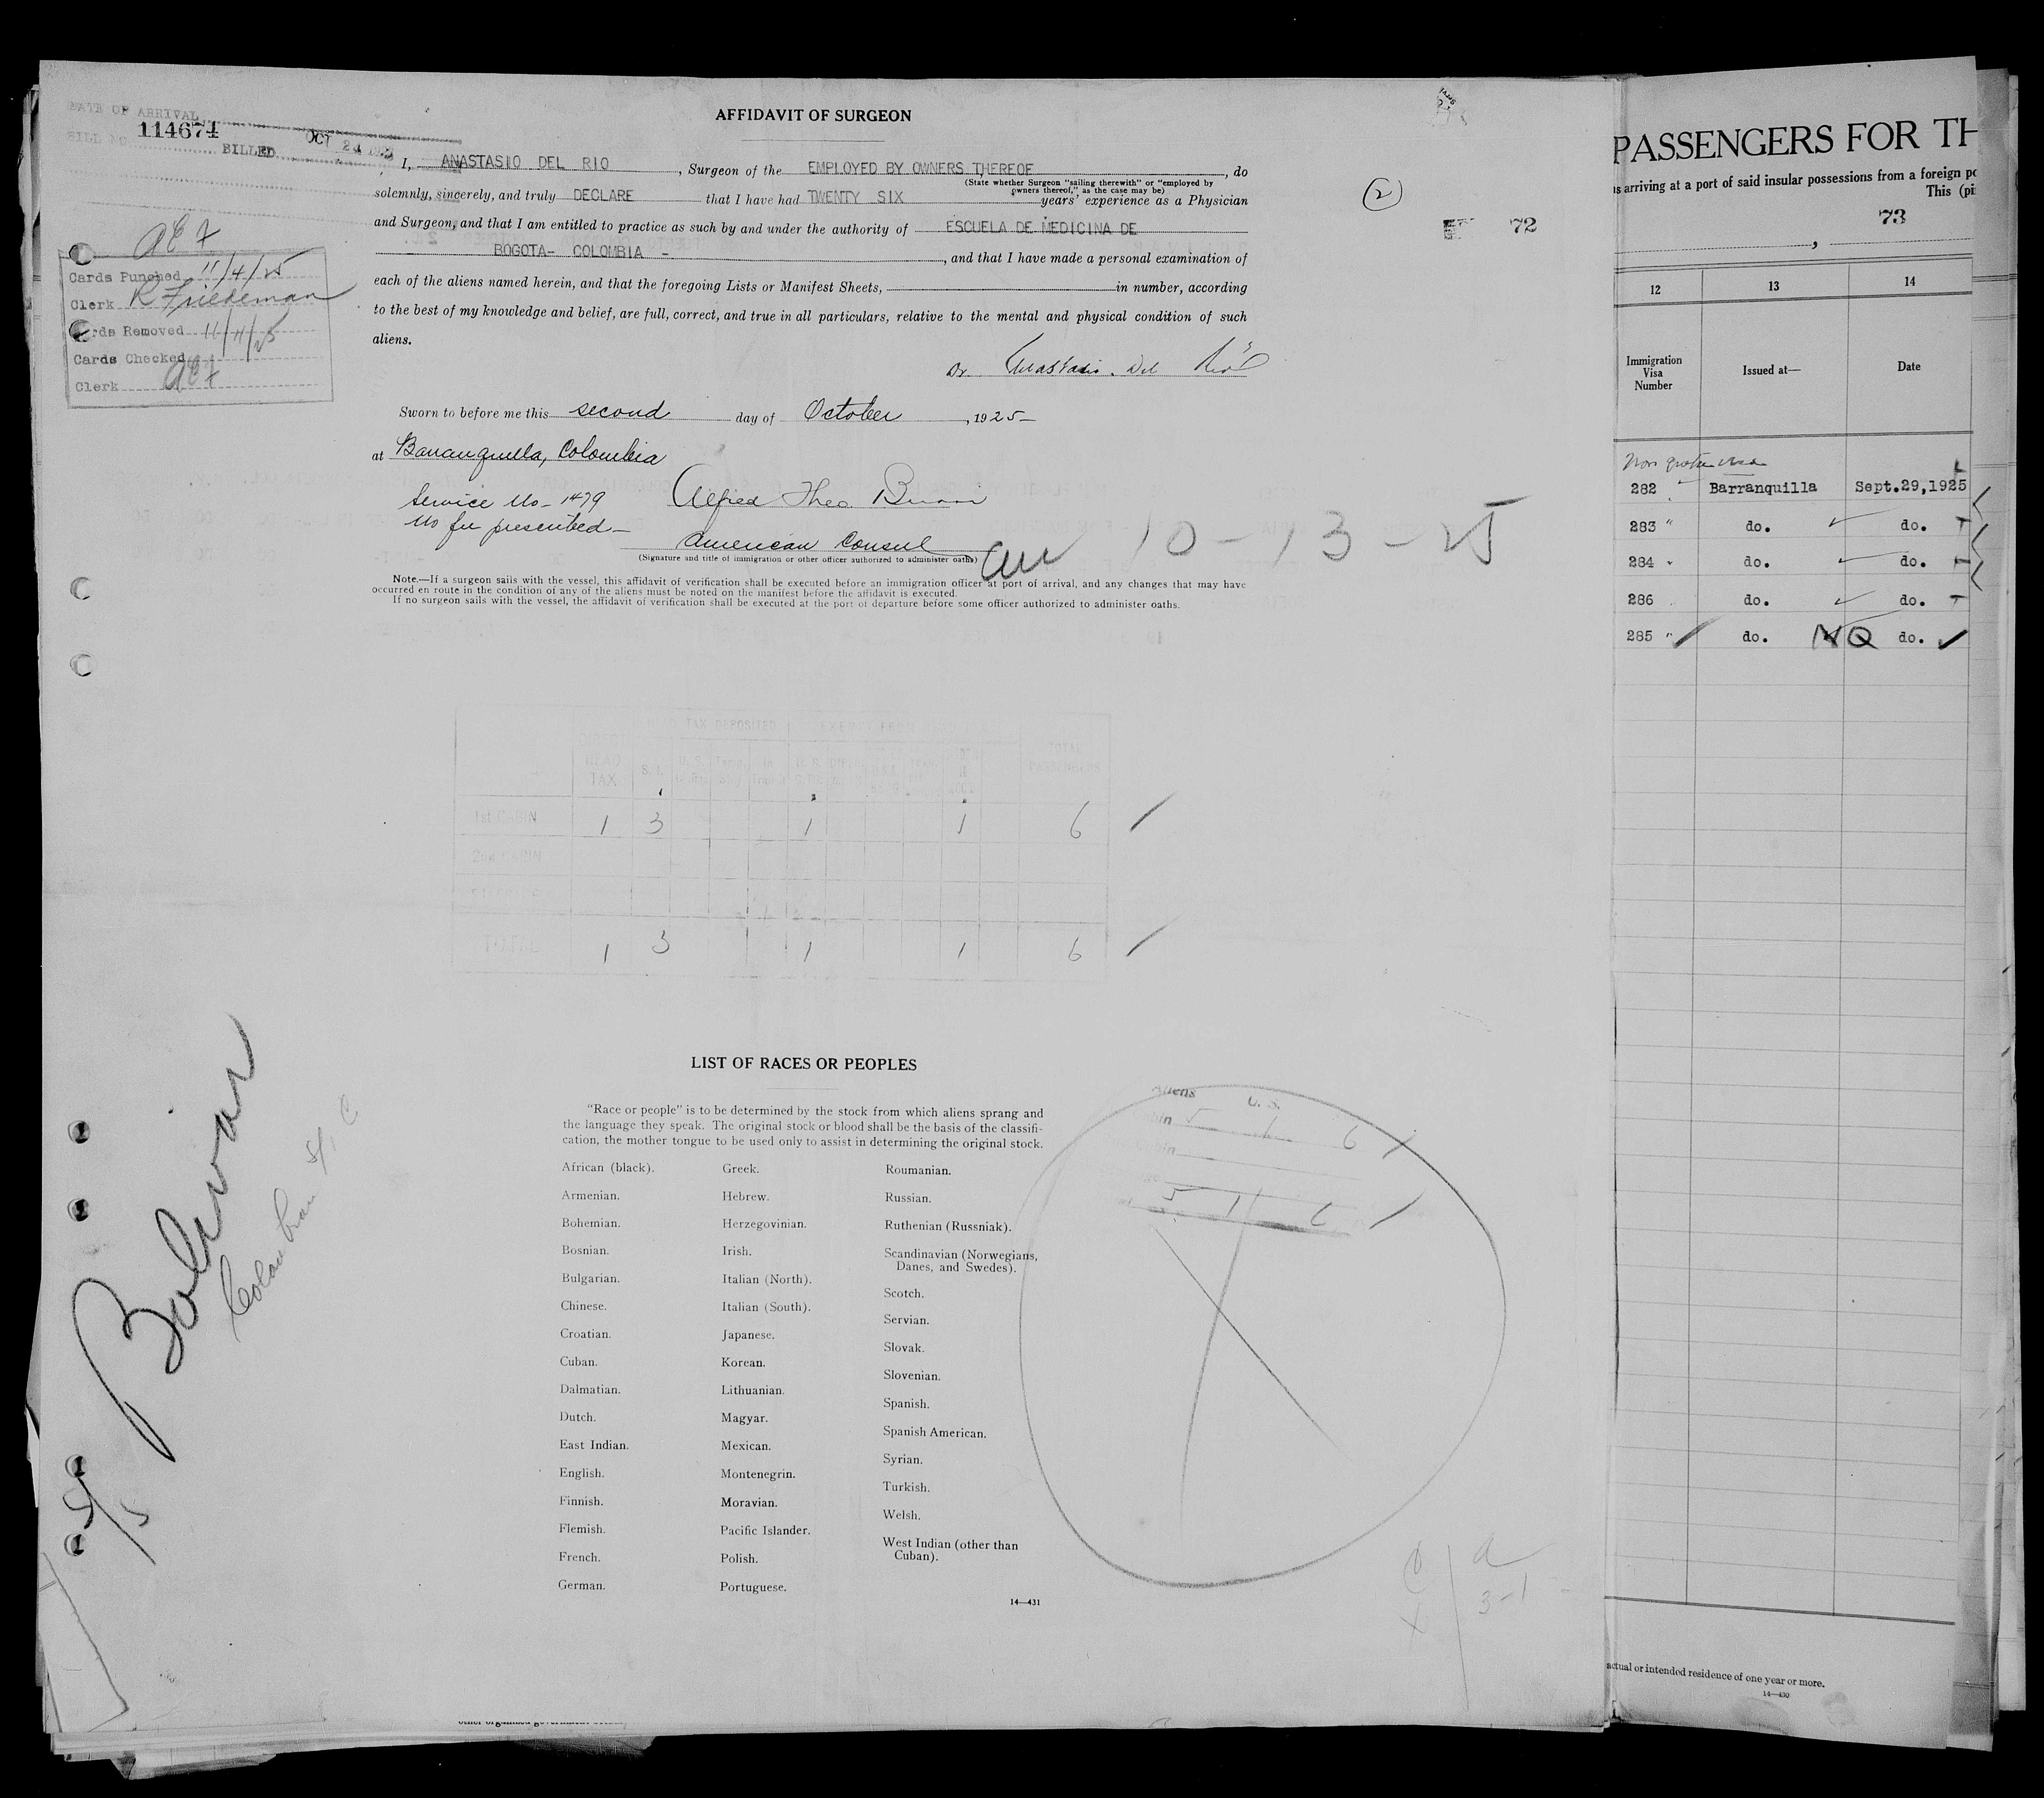 DATE OF ARRIVAL
BILL NO. 114674
BILLED OCT 24
AFFIDAVIT OF SURGEON
I, ANASTASIO DEL RIO, Surgeon of the EMPLOYED BY OWNERS THEREOF, do
(State whether Surgeon "sailing therewith" or "employed by
owners thereof," as the case may be)
solemnly, sincerely, and truly DECLARE that I have had TWENTY SIX years' experience as a Physician
and Surgeon, and that I am entitled to practice as such by and under the authority of ESCUELA DE MEDICINA DE
BOGOTA- COLOMBIA -, and that I have made a personal examination of
each of the aliens named herein, and that the foregoing Lists or Manifest Sheets, in number, according
to the best of my knowledge and belief, are full, correct, and true in all particulars, relative to the mental and physical condition of such
aliens.
Dr Anastasio Del Rio
Sworn to before me this second day of October, 1925
at Barranquilla, Colombia
Service No- 1479
No fee prescribed-
Alfred Theo. Burri
American Consul
(Signature and title of immigration or other officer authorized to administer oaths)
10-13-25
Note.—If a surgeon sails with the vessel, this affidavit of verification shall be executed before an immigration officer at port of arrival, and any changes that may have
occurred en route in the condition of any of the aliens must be noted on the manifest before the affidavit is executed.
If no surgeon sails with the vessel, the affidavit of verification shall be executed at the port of departure before some officer authorized to administer oaths.
Cards Punched 11/4/25
Clerk R Friedeman
Cards Removed
Cards Checked
Clerk
2
72
HEAD TAX DEPOSITED
HEAD TAX
S. I.
TOTAL PASSENGERS
1st CABIN 1 3 1 1 6
2nd CABIN
TOTAL 1 3 1 1 6
Bolivar
Colombian S/S C
LIST OF RACES OR PEOPLES
"Race or people" is to be determined by the stock from which aliens sprang and
the language they speak. The original stock or blood shall be the basis of the classifi-
cation, the mother tongue to be used only to assist in determining the original stock.
African (black).
Armenian.
Bohemian.
Bosnian.
Bulgarian.
Chinese.
Croatian.
Cuban.
Dalmatian.
Dutch.
East Indian.
English.
Finnish.
Flemish.
French.
German.
Greek.
Hebrew.
Herzegovinian.
Irish.
Italian (North).
Italian (South).
Japanese.
Korean.
Lithuanian.
Magyar.
Mexican.
Montenegrin.
Moravian.
Pacific Islander.
Polish.
Portuguese.
Roumanian.
Russian.
Ruthenian (Russniak).
Scandinavian (Norwegians,
Danes, and Swedes).
Scotch.
Servian.
Slovak.
Slovenian.
Spanish.
Spanish American.
Syrian.
Turkish.
Welsh.
West Indian (other than
Cuban).
14—431
Aliens U. S.
5 1 6
5 1 6
3-1
PASSENGERS FOR TH
arriving at a port of said insular possessions from a foreign po
This (pi
73
12 13 14
Immigration
Visa
Number
Issued at—
Date
Non quota visa
282 Barranquilla Sept.29,1925
283 " do. do.
284 do. do.
286 do. do.
285 " do. NQ do.
actual or intended residence of one year or more.
14—430